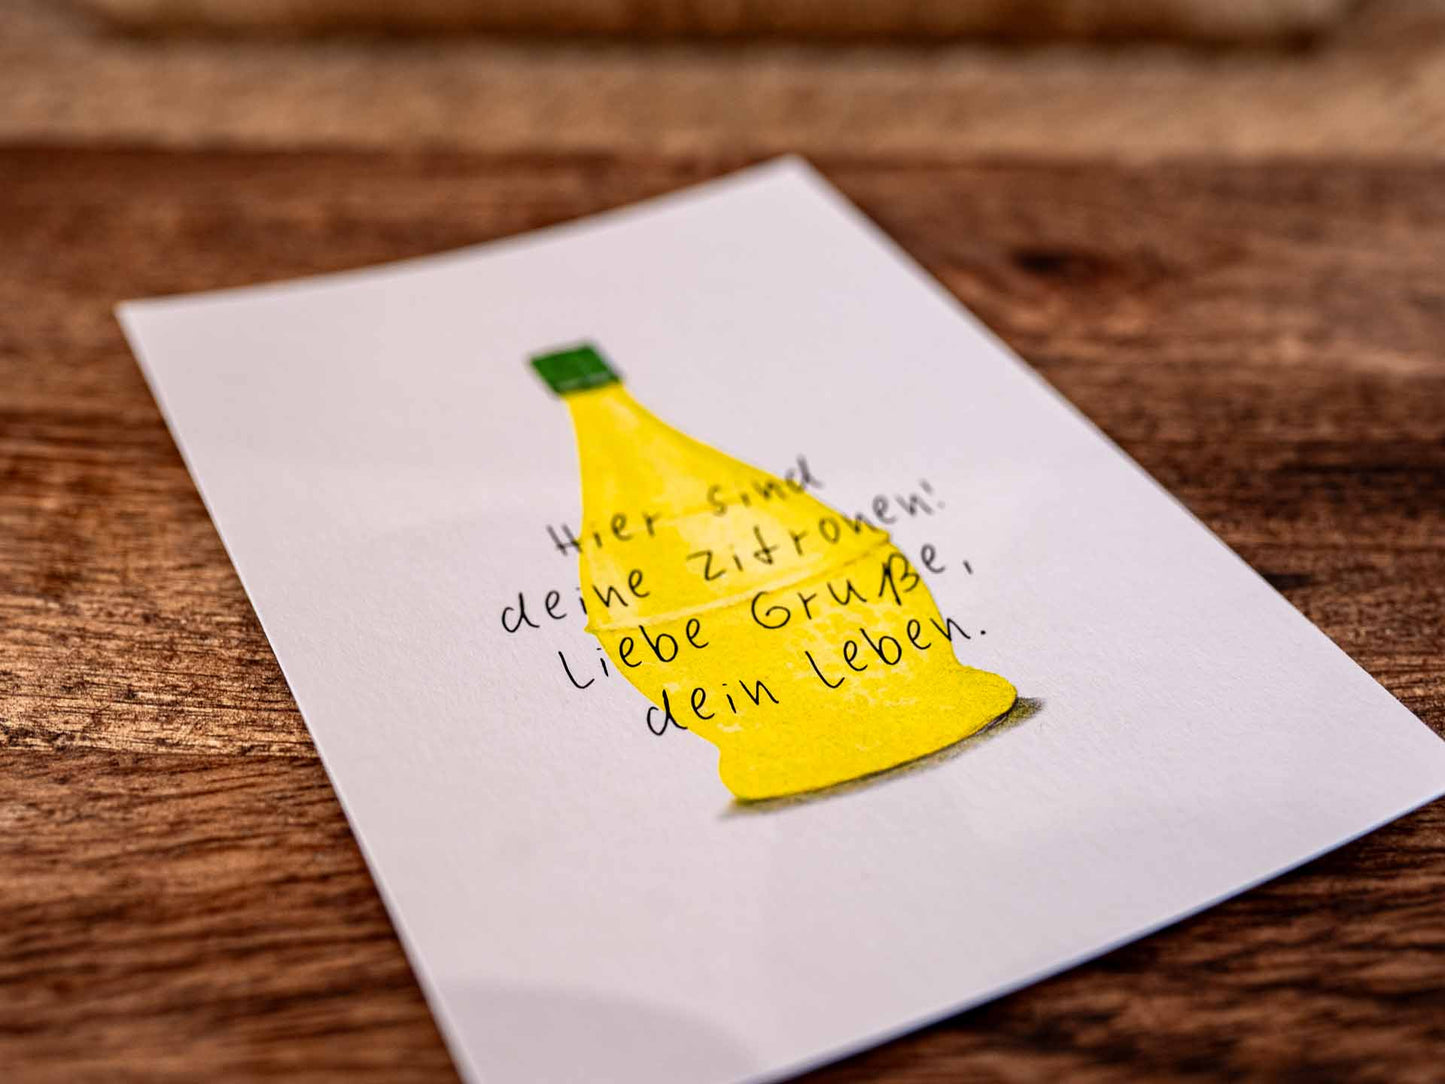 Hier sind
deine Zitronen!
Liebe Gruße,
dein Leben.